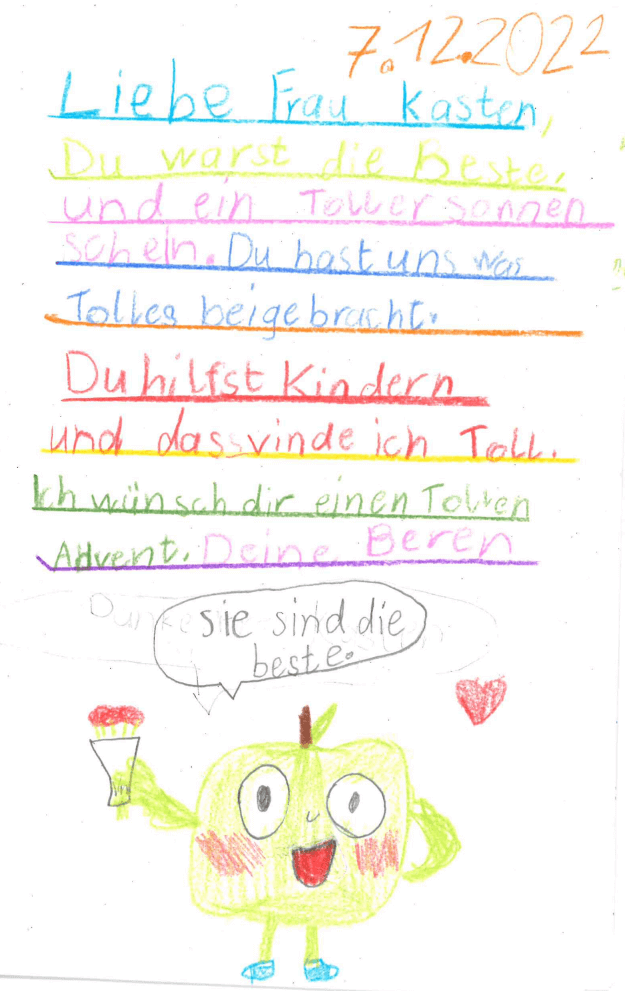 7.12.2022
Liebe Frau Kasten,
Du warst die Beste.
und ein Toller sonnen
schein. Du hast uns was
Tolles beigebracht.
Du hilfst Kindern
und dass vinde ich Toll.
Ich wünsch dir einen Tollen
Advent. Deine Beren
sie sind die
beste.